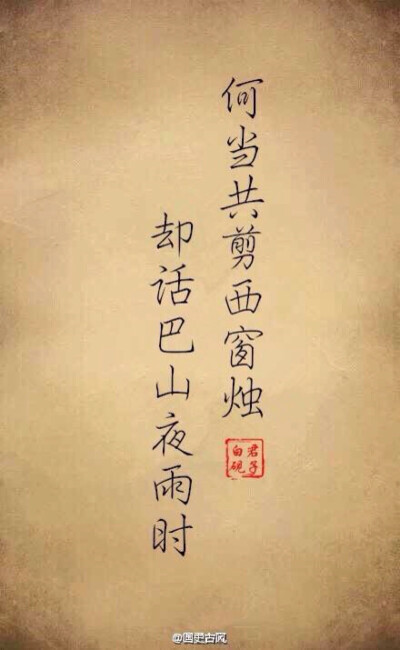 何当共剪西窗烛
却话巴山夜雨时
君子
白砚
@国史古风